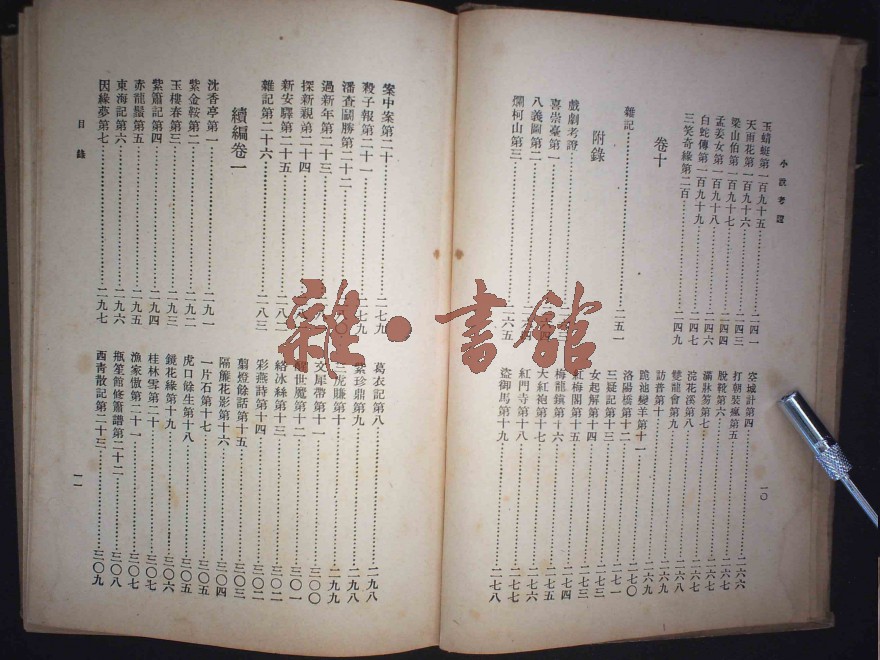 小說考證
玉蜻蜓第一百九十五…二四一
天雨花第一百九十六…二四三
梁山伯第一百九十七
孟姜女第一百九十八…二四六
白蛇傳第一百九十九
三笑奇緣第二百…二四九
卷十
雜記…二五一
附錄
戲劇考證
喜崇臺第一
八義圖第二
爛柯山第三…二六五
空城計第四…二六六
打朝裝瘋第五…二六六
脫靴第六…二六七
滿牀笏第七…二六七
浣花溪第八…二六八
雙龍會第九…二六九
訪普第十…二六九
跪池變羊第十一…二七〇
洛陽橋第十二…二七一
三疑記第十三…二七三
女起解第十四…二七三
紅梅閣第十五…二七四
梅龍鎮第十六…二七五
大紅袍第十七…二七六
紅門寺第十八…二七七
盜御馬第十九…二七八
一〇
案中案第二十…二七九
殺子報第二十一…二七九
潘查鬪勝第二十二
過新年第二十三
探新親第二十四
新安驛第二十五…二八二
雜記第二十六…二八三
續編卷一
沈香亭第一…二九一
紫金鞍第二…二九二
玉樓春第三…二九三
紫簫記第四…二九四
赤龍鬚第五…二九五
東海記第六…二九六
因緣夢第七…二九七
葛衣記第八…二九八
紫珍鼎第九…二九八
三虎賺第十…二九九
文犀帶第十一…三〇〇
醒世魔第十二…三〇一
絡冰絲第十三…三〇二
彩燕詩第十四…三〇二
翦燈餘話第十五…三〇三
隔簾花影第十六…三〇四
一片石第十七…三〇五
虎口餘生第十八…三〇五
鏡花緣第十九…三〇六
桂林雪第二十…三〇七
漁家傲第二十一…三〇七
瓶笙館修簫譜第二十二…三〇八
西青散記第二十三…三〇九
目錄
一一
雜·書館